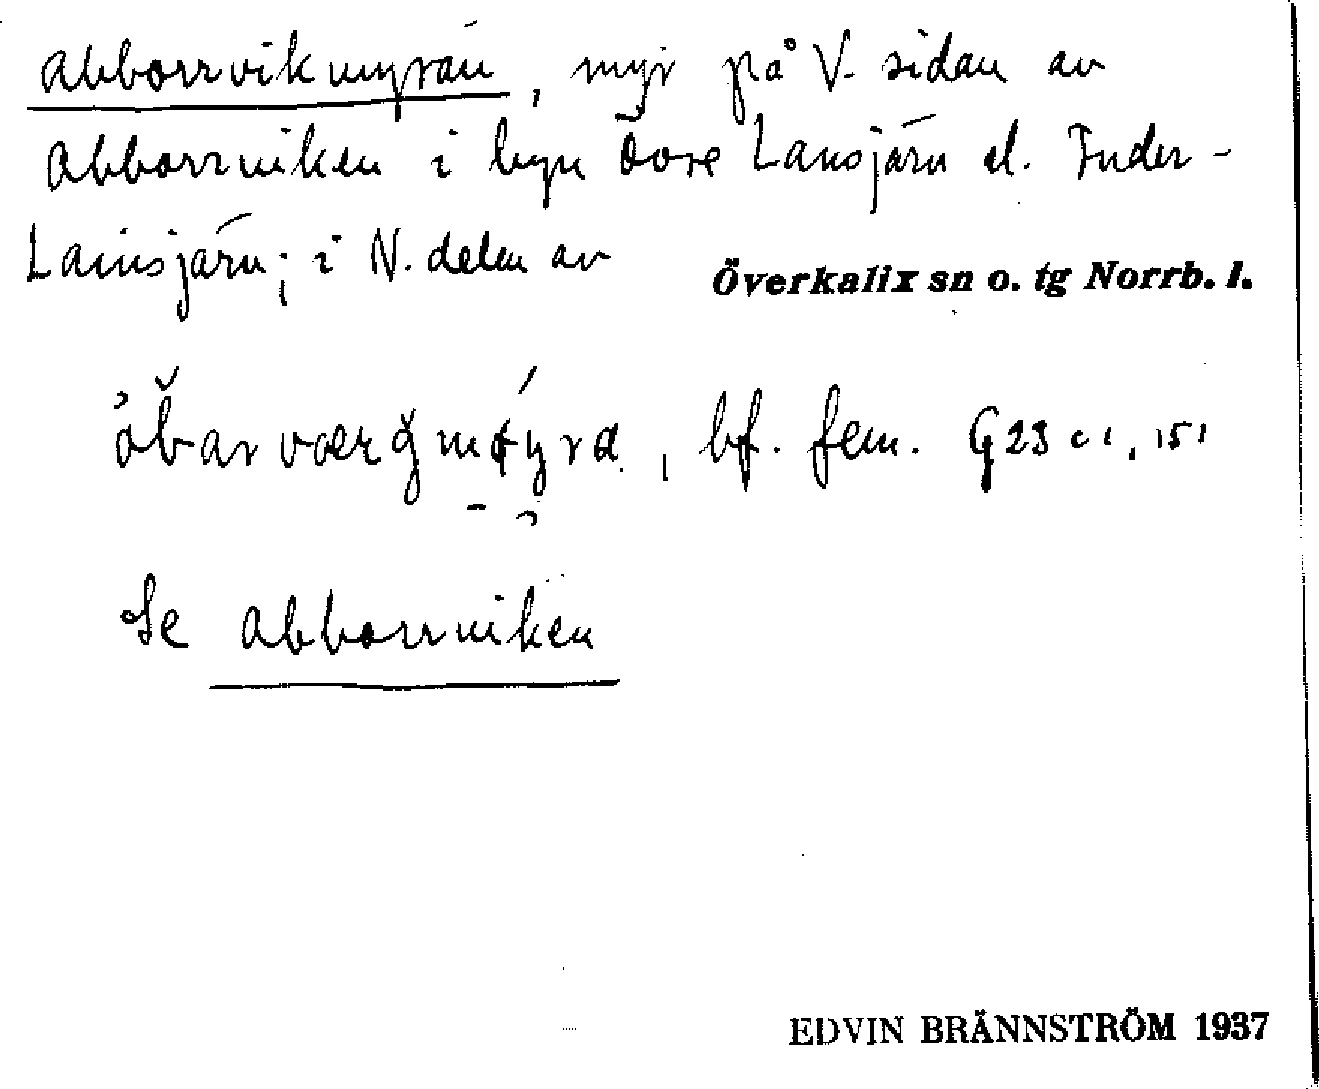 Abborrvikmyran, myr på V. sidan av
Abborrviken i byn Övre Lansjärv el. Inder-
Lansjärv; i N. delen av
Överkalix sn o. tg Norrb. l.
bf. fem. G23 c1, 151
Se Abborrviken
EDVIN BRÄNNSTRÖM 1937